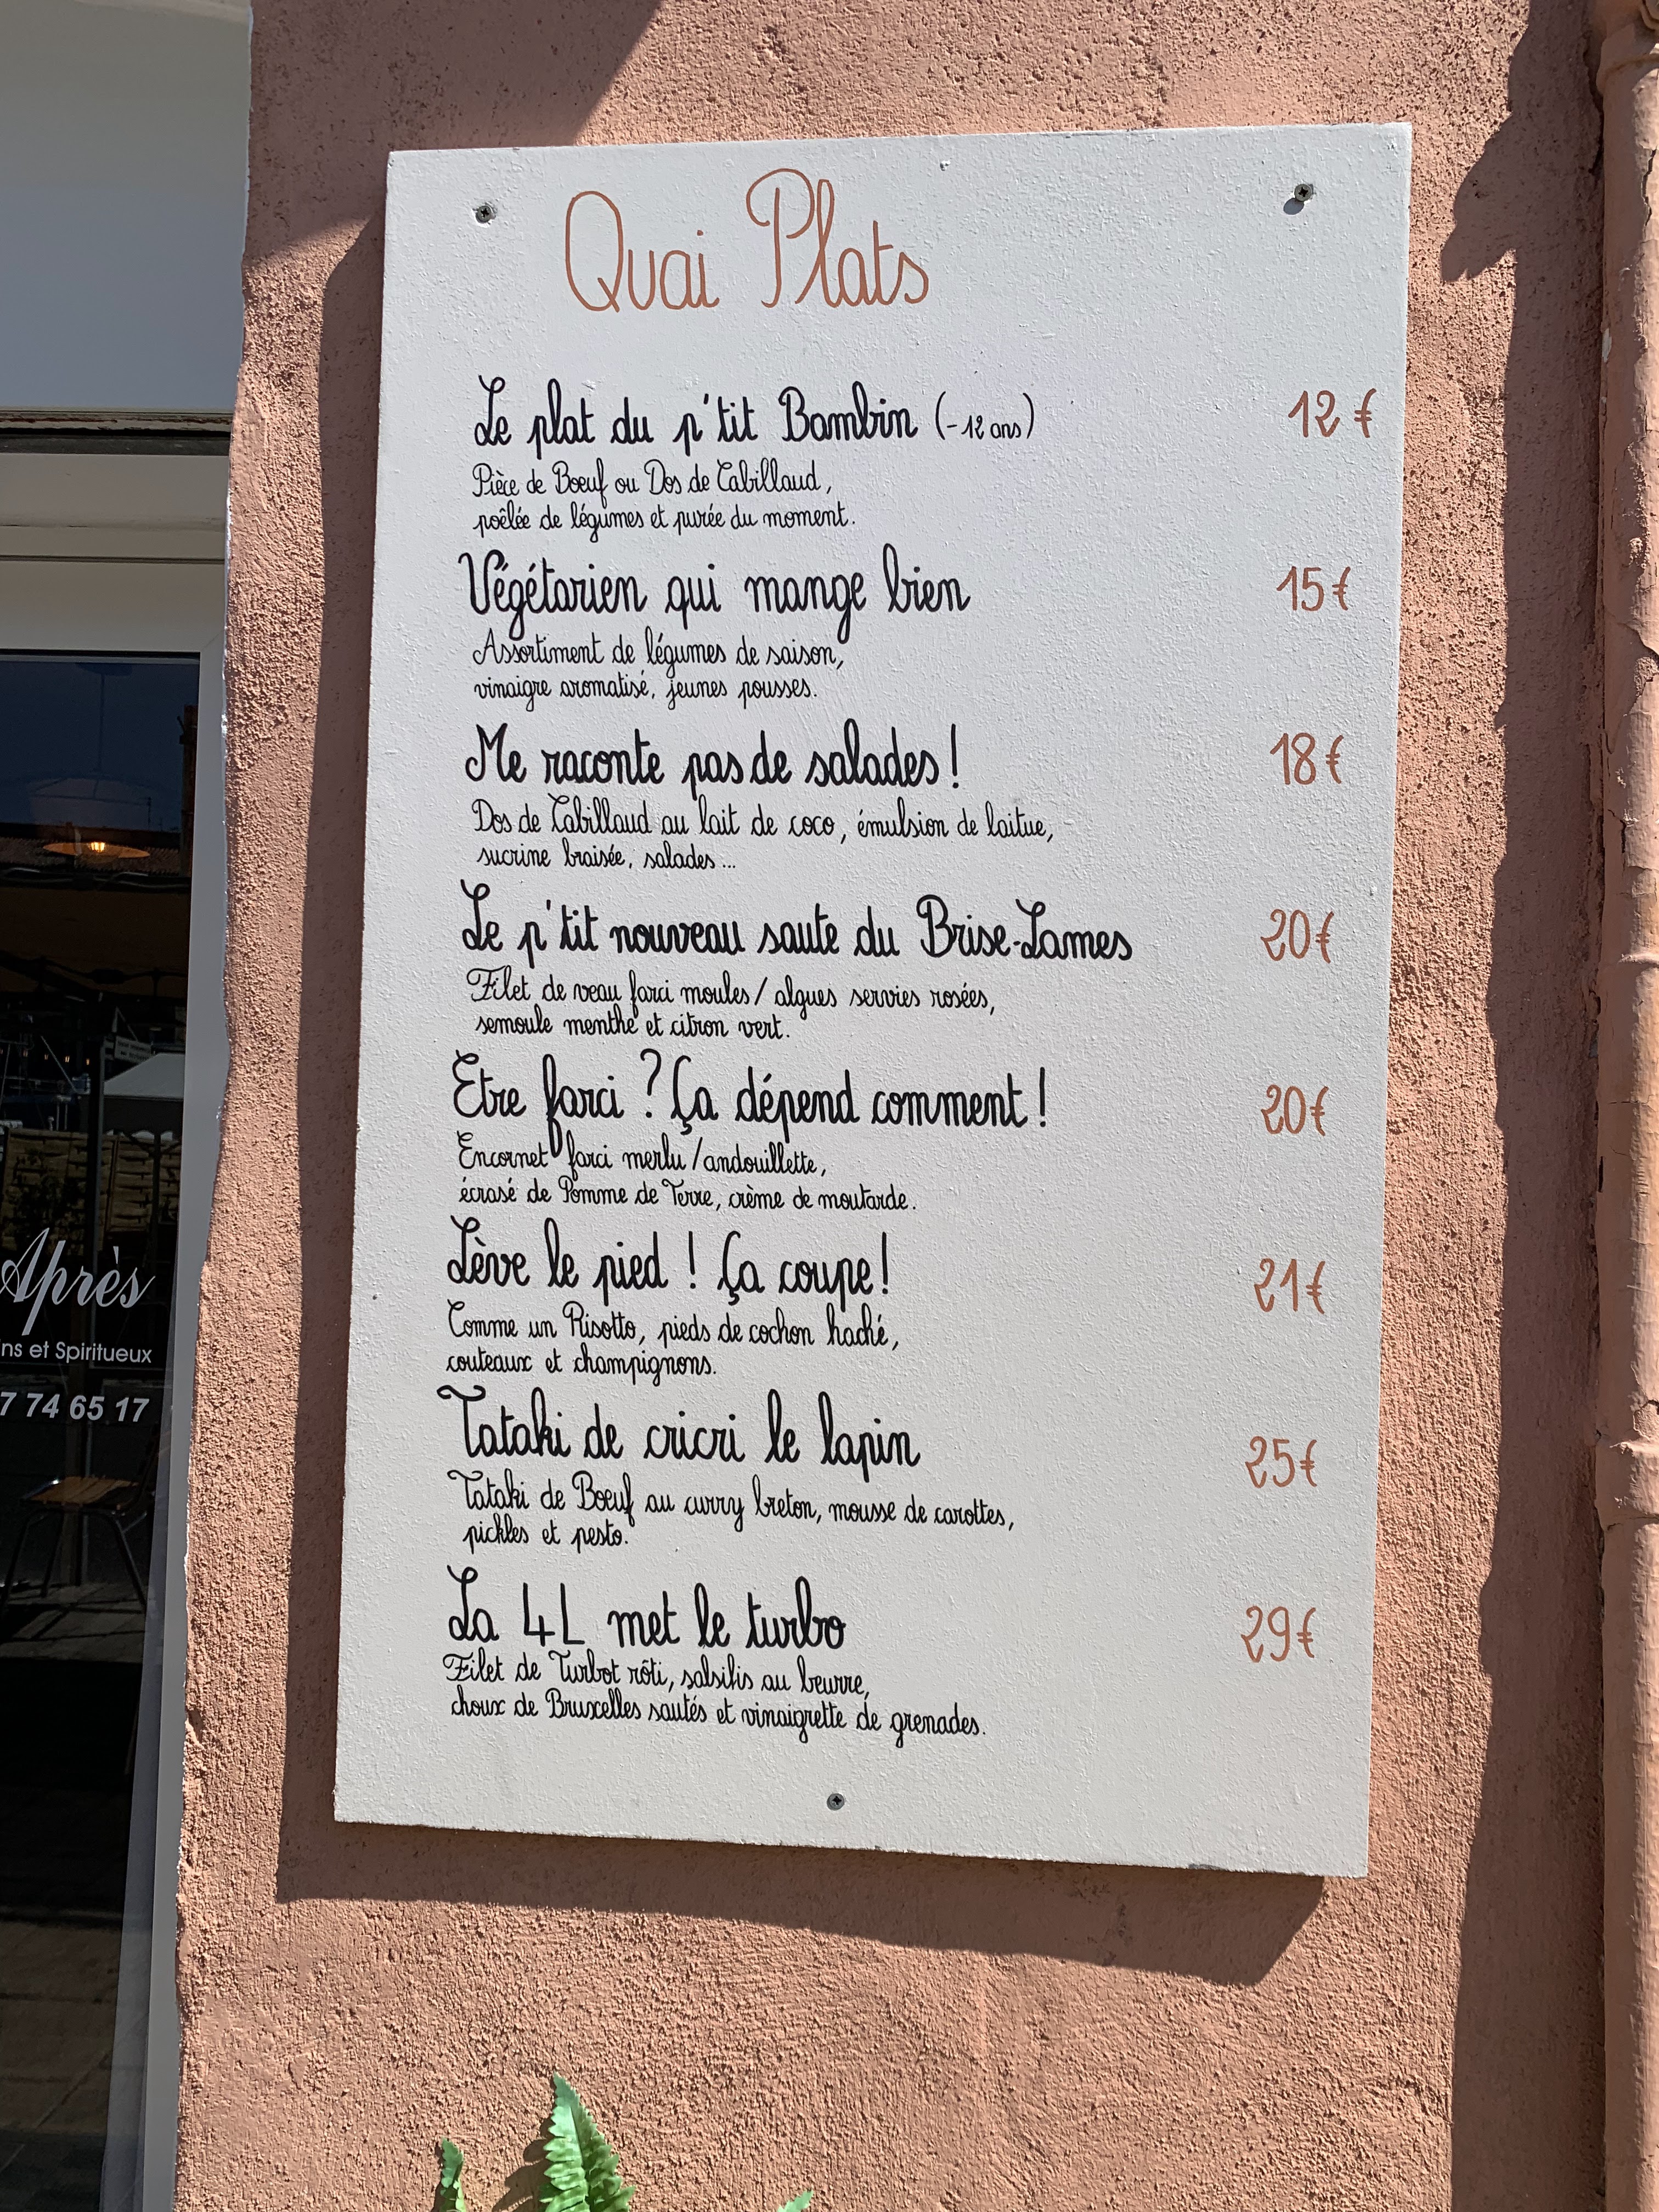 Quai Plats
Le plat du p'tit Bambin (-12 ans) 12 €
Pièce de Boeuf ou Dos de Cabillaud,
poêlée de légumes et purée du moment.
Végétarien qui mange bien 15€
Assortiment de légumes de saison,
vinaigre aromatisé, jeunes pousses.
Me raconte pas de salades ! 18€
Dos de Cabillaud au lait de coco, émulsion de laitue,
sucrine braisée, salades ...
Le p'tit nouveau saute du Brise-Lames 20€
Filet de veau farci moules / algues servies rosées,
semoule menthe et citron vert.
Etre farci ? Ça dépend comment ! 20€
Encornet farci merlu / andouillette,
écrasé de Pomme de Terre, crème de moutarde.
Lève le pied ! Ça coupe ! 21€
Comme un Risotto, pieds de cochon haché,
couteaux et champignons.
Tataki de cricri le lapin 25€
Tataki de Boeuf au curry breton, mousse de carottes,
pickles et pesto.
La 4L met le turbo 29€
Filet de Turbot rôti, salsifis au beurre,
choux de Bruxelles sautés et vinaigrette de grenades.
Après
ns et Spiritueux
7 74 65 17